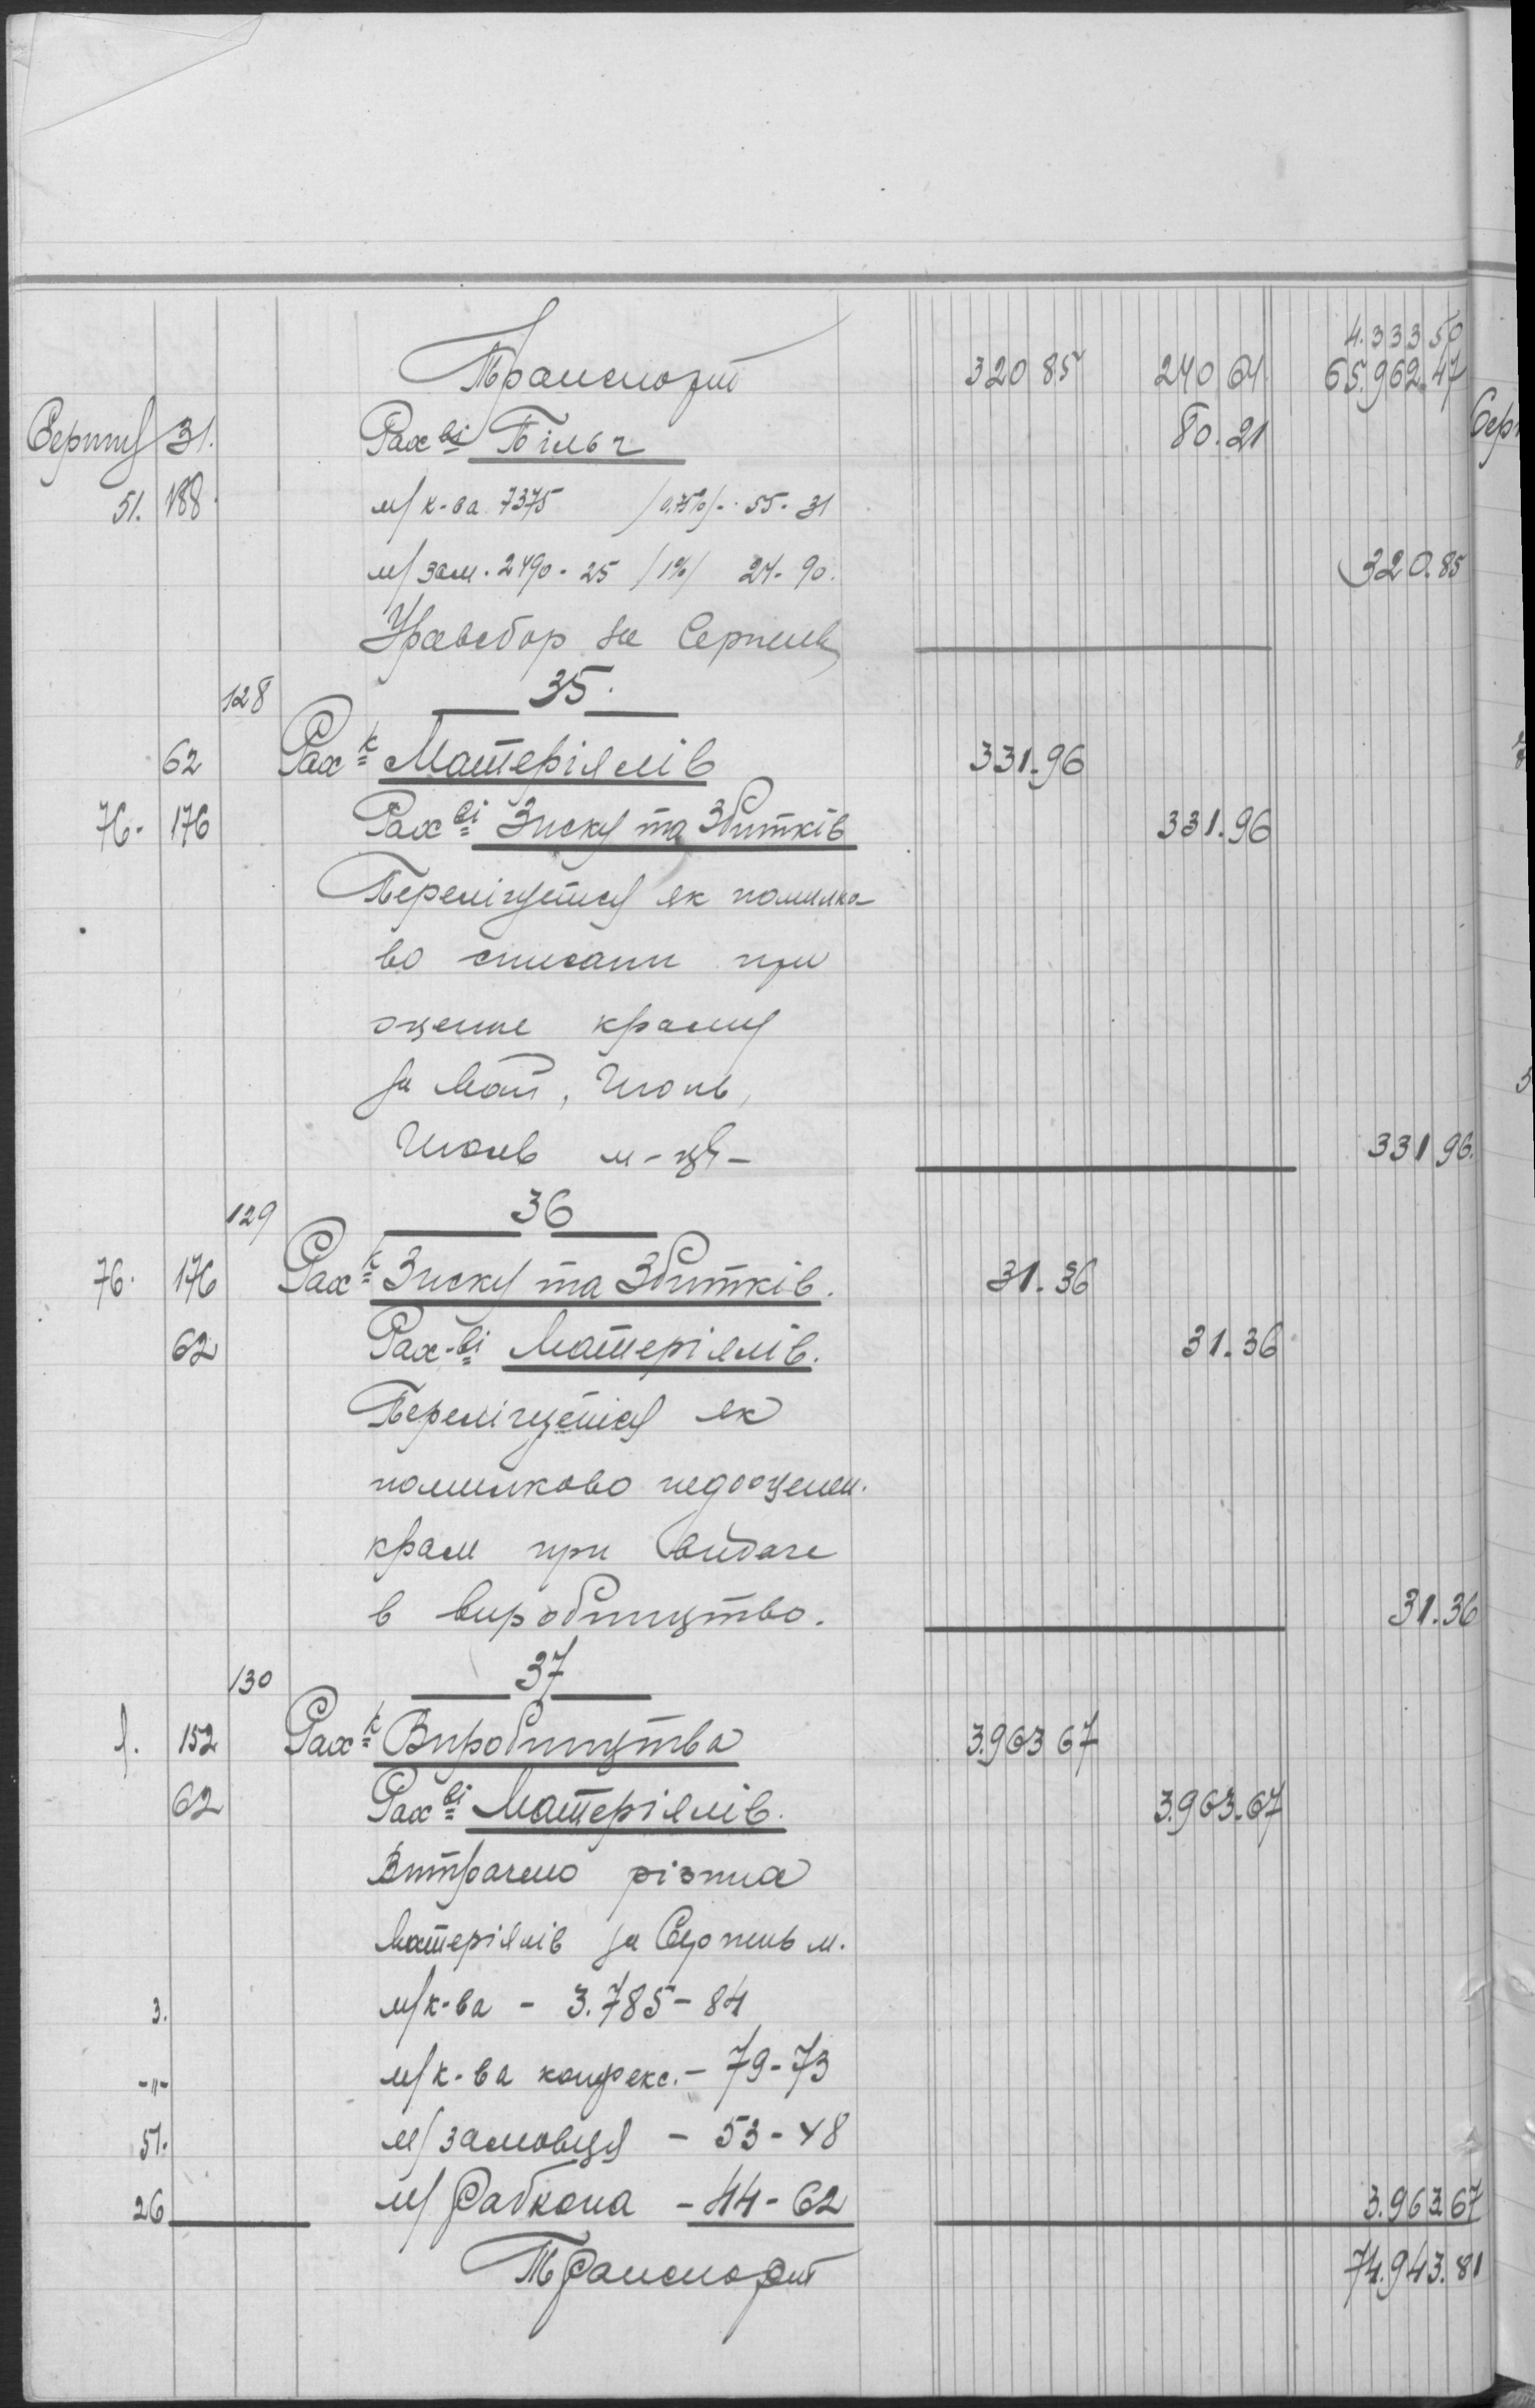 4.333 50
Транспорт 320 85 240 64 65.962.47
Серпня 31. Рах ві Більч 80.21
51. 188. м/к-ва 7375 /0,75%/-. 55-31
м/зам. 2490-25 /1%/ 24-90. 320.85
Уравсбор за Серпень
128 35.
62 Рах к Матеріялів 331.96
76- 176 Рах ві Зиску та Збитків 331.96
Перелічуется як помилко-
во списани при
оценке краму
за Май, Июнь,
Июль м-ці- 331 96.
129 36
76. 176 Рах к Зиску та Збитків. 31.36
62 Рах-ві Матеріялів. 31.36
Перелічуется як
помилково недооценен.
крам при видаче
в виробництво. 31.36
130 37
1. 152 Рах к Виробництва 3.963 67
62 Рах ві Матеріялів. 3.963.67
Витрачено різния
Матеріялів за Серпень м.
3. м/к-ва - 3.785-84
-"- м/к-ва конфекс. - 79-73
51. м/замовця - 53-48
26 м/Рабкопа - 44-62 3.963.67
Транспорт 74.943.81